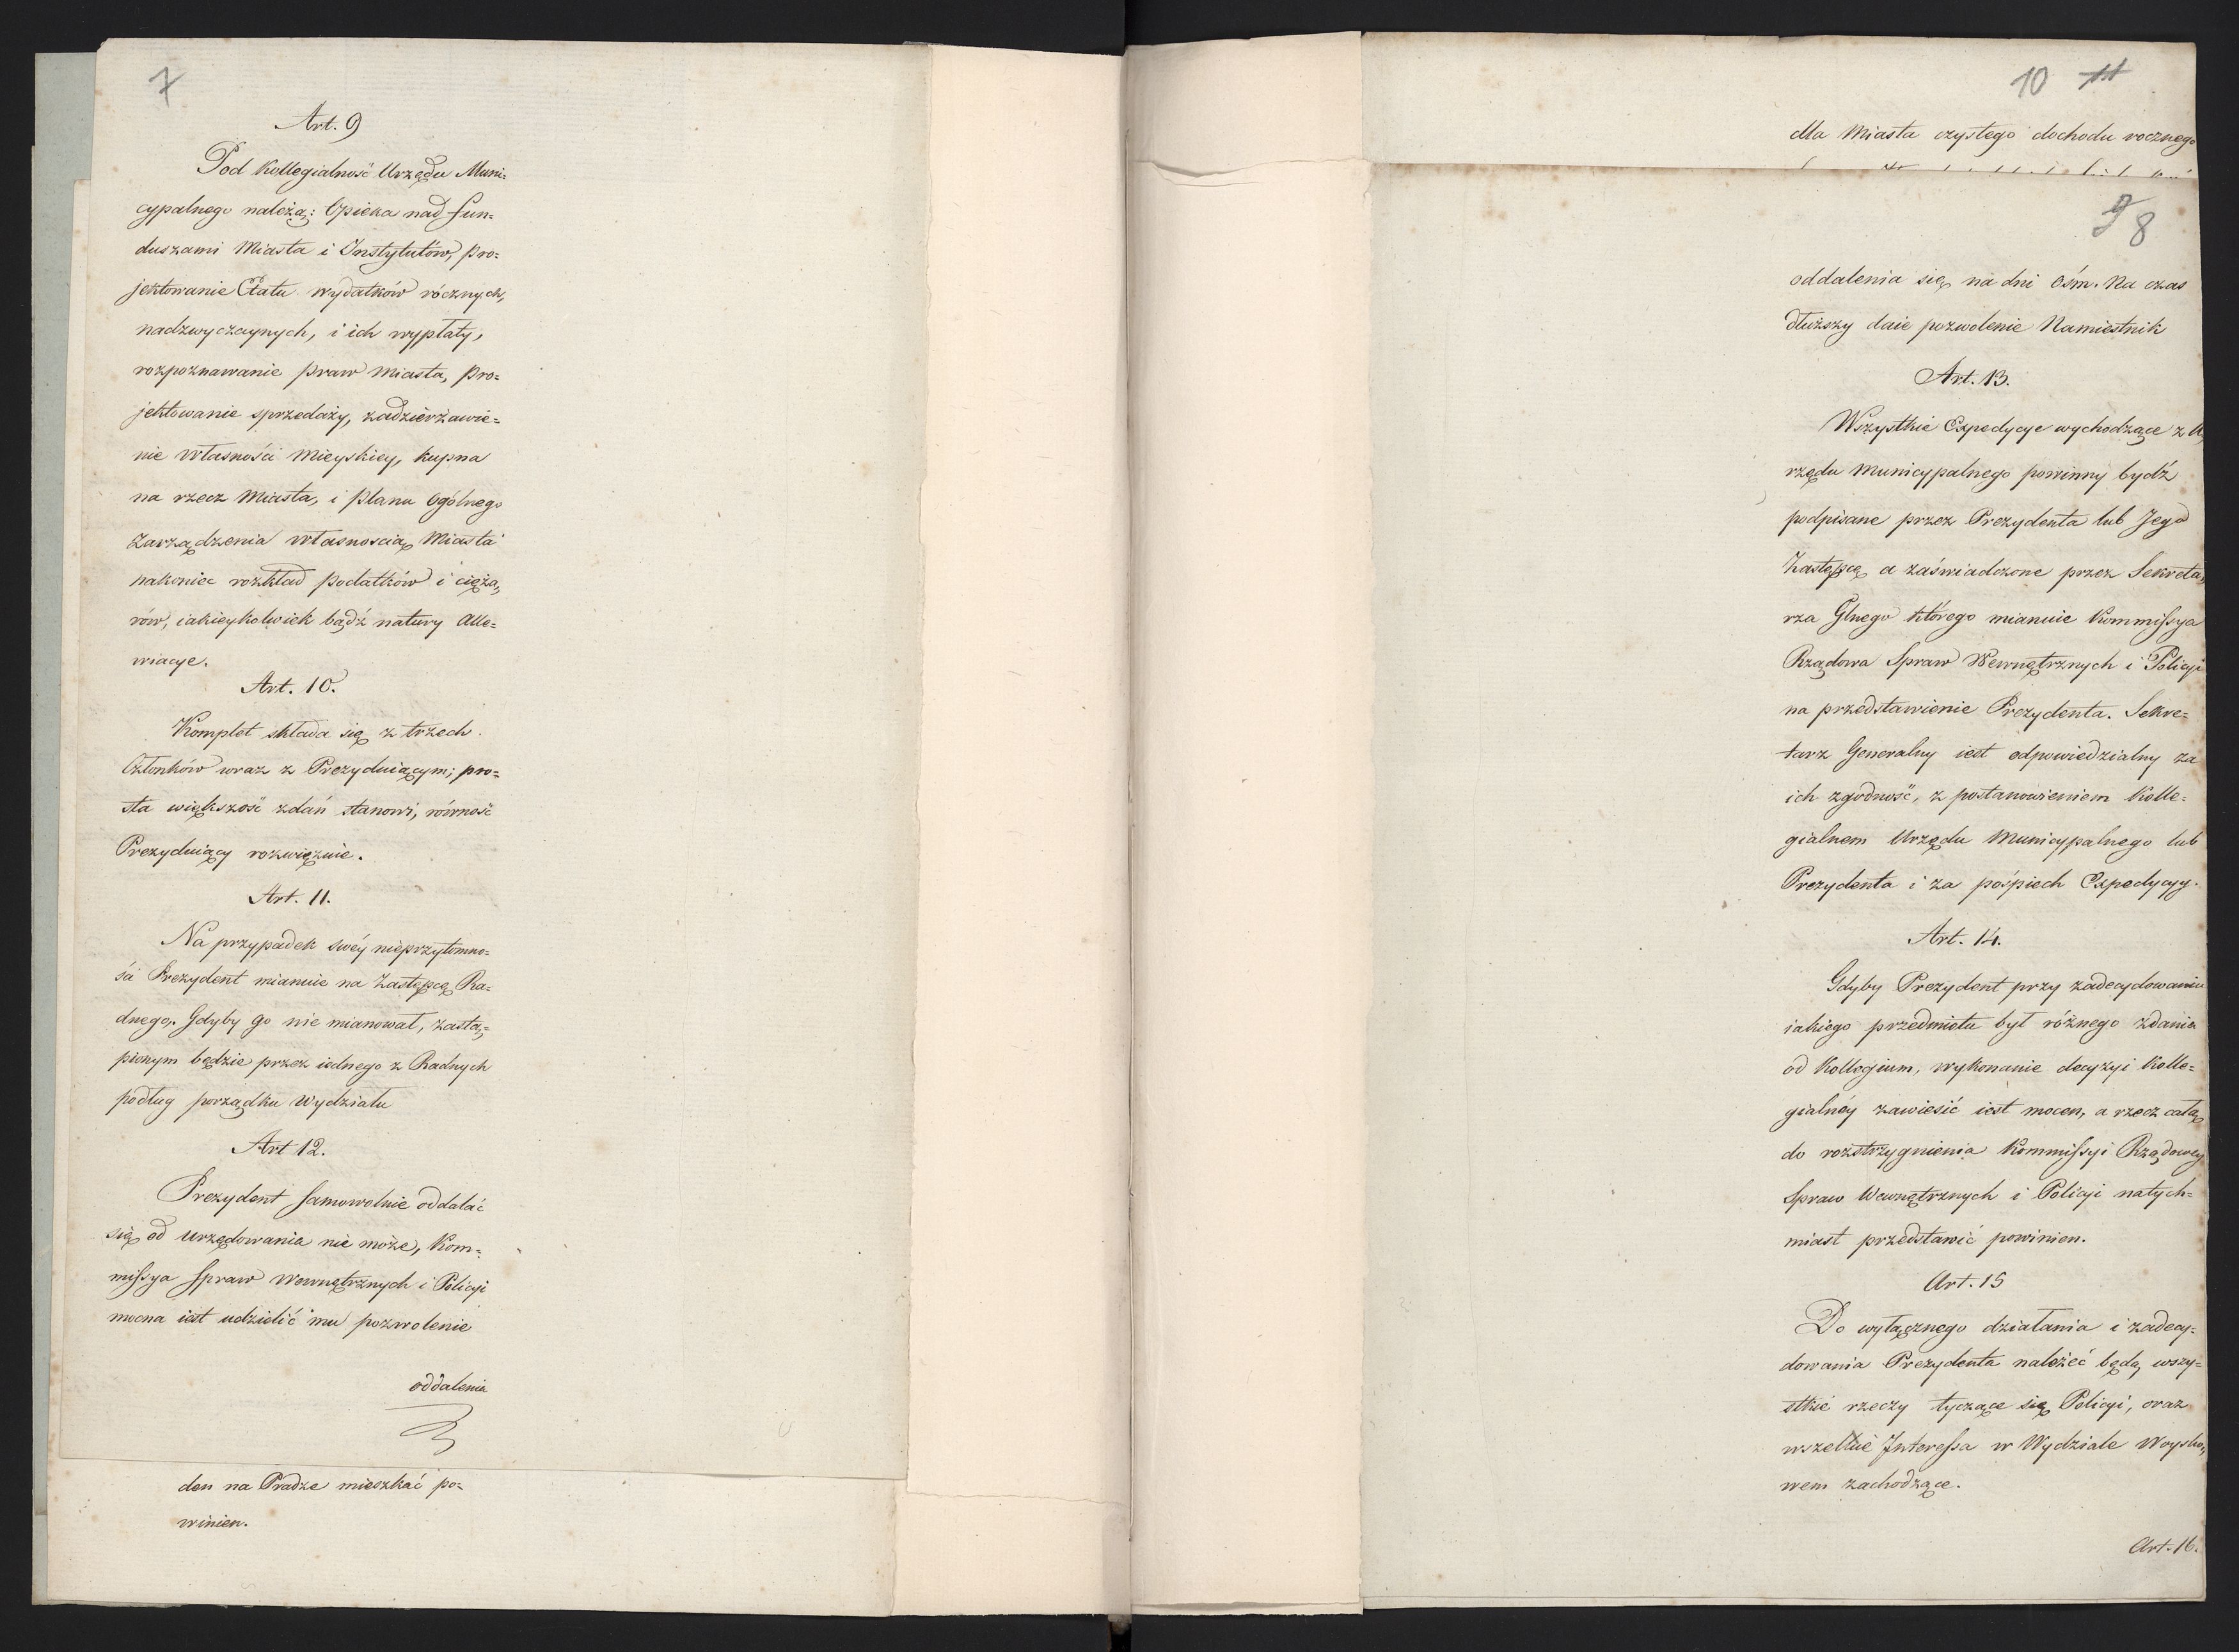 7
Art. 9
Pod Kollegialność Urzędu Muni=
cypalnego należą: Opieka nad fun=
duszami Miasta i Instytutów, pro=
jektowanie Etatu wydatków rócznych,
nadzwyczaynych, i ich wypłaty,
rozpoznawanie praw Miasta, pro=
jektowanie sprzedaży, zadzierżawie=
nie własności Mieyskiey, kupna
na rzecz Miasta, i planu Ogólnego
Zarządzenia własnoscią Miasta
nakoniec rozkład podatków i cięża„
rów, iakieykolwiek bądź natury Alle=
wiacye.
Art. 10.
Komplet składa się z trzech
Członków wraz z Prezyduiącym; pro=
sta większość zdań stanowi, równość
Prezyduiący rozwięzuie.
Art. 11.
Na przypadek swéy nieprzytomno=
ści Prezydent mianuie na Zastępcę Ra=
dnego. Gdyby go nie mianował, zastą=
pionym będzie przez iednego z Radnych
podług porządku Wydziału
Art 12.
Prezydent samowolnie oddalać
się od Urzędowania nie może, Kom=
missya Spraw Wewnętrznych i Policyi
mocna iest udzielić mu pozwolenie
oddalenia
den na Pradze mieszkać po=
winien.
10 11
dla Miasta czystego dochodu rocznego
9 8
oddalenia się na dni Ośm. Na czas
dłuższy daie pozwolenie Namiestnik
Art. 13.
Wszystkie Expedycye wychodzące z U„
rzędu Municypalnego powinny bydź
podpisane przez Prezydenta lub Jego
Zastępcę a zaświadczone przez Sekreta„
rza Glnego którego mianuie Kommissya
Rządowa Spraw Wewnętrznych i Policyi
na przedstawienie Prezydenta. Sekre=
tarz Generalny iest odpowiedzialny za
ich zgodność, z postanowieniem Kolle=
gialnem Urzędu Municypalnego lub
Prezydenta i za pośpiech Expedycyy.
Art. 14.
Gdyby Prezydent przy zadecydowaniu
iakiego przedmiotu był różnego zdania
od Kollegium, wykonanie decyzyi Kolle=
gialnéy zawiesić iest mocen, a rzecz całą
do rozstrzygnienia Kommissyi Rządowey
Spraw Wewnętrznych i Policyi natych=
miast przedstawić powinien.
Art. 15
Do wyłącznego działania i zadecy=
dowania Prezydenta należeć będą wszy=
stkie rzeczy tyczące się Policyi, oraz
wszelkie Interessa w Wydziale Woysko„
wem zachodzące.
Art. 16.